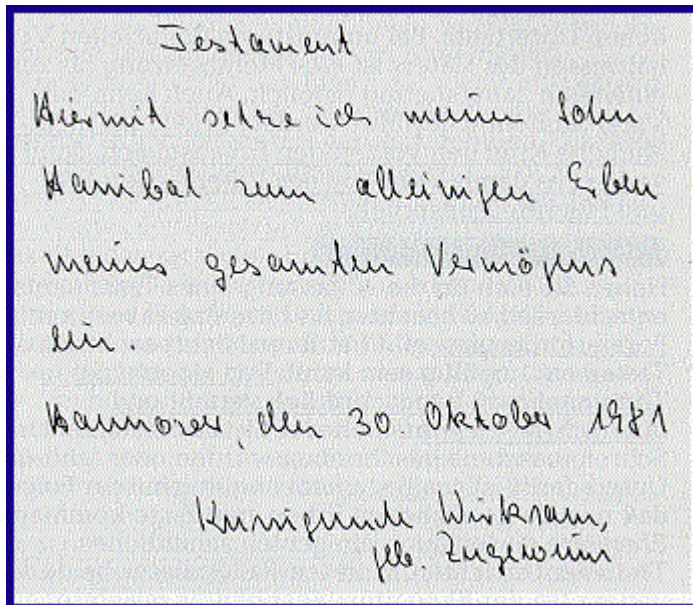 Testament
Hiermit setze ich meinen Sohn
Hanibal zum alleinigen Erben
meines gesamten Vermögens
ein.
Hannover, den 30. Oktober 1981
Kunigunde Wirksam,
geb. Zugewinn